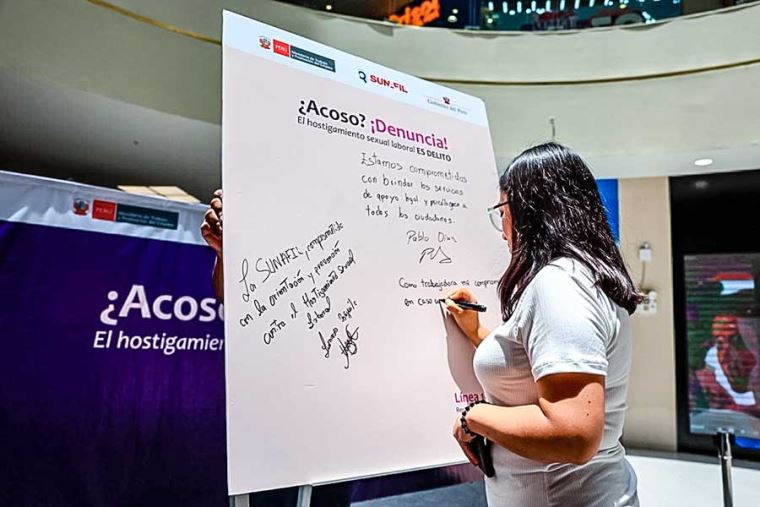 PERÚ
Ministerio de Trabajo
y Promoción del Empleo
SUNAFIL
Gobierno del Perú
¿Acoso? ¡Denuncia!
El hostigamiento sexual laboral ES DELITO
Estamos comprometidos
con brindar los servicios
de apoyo legal y psicológico a
todos los ciudadanos.
Pablo
La SUNAFIL, comprometido
con la orientación y prevención
contra el Hostigamiento Sexual
Laboral
Como trabajadora me comprom
en caso
Línea
PERÚ
Ministerio de Trabajo
y Promoción del Empleo
¿Acoso
El hostigamien